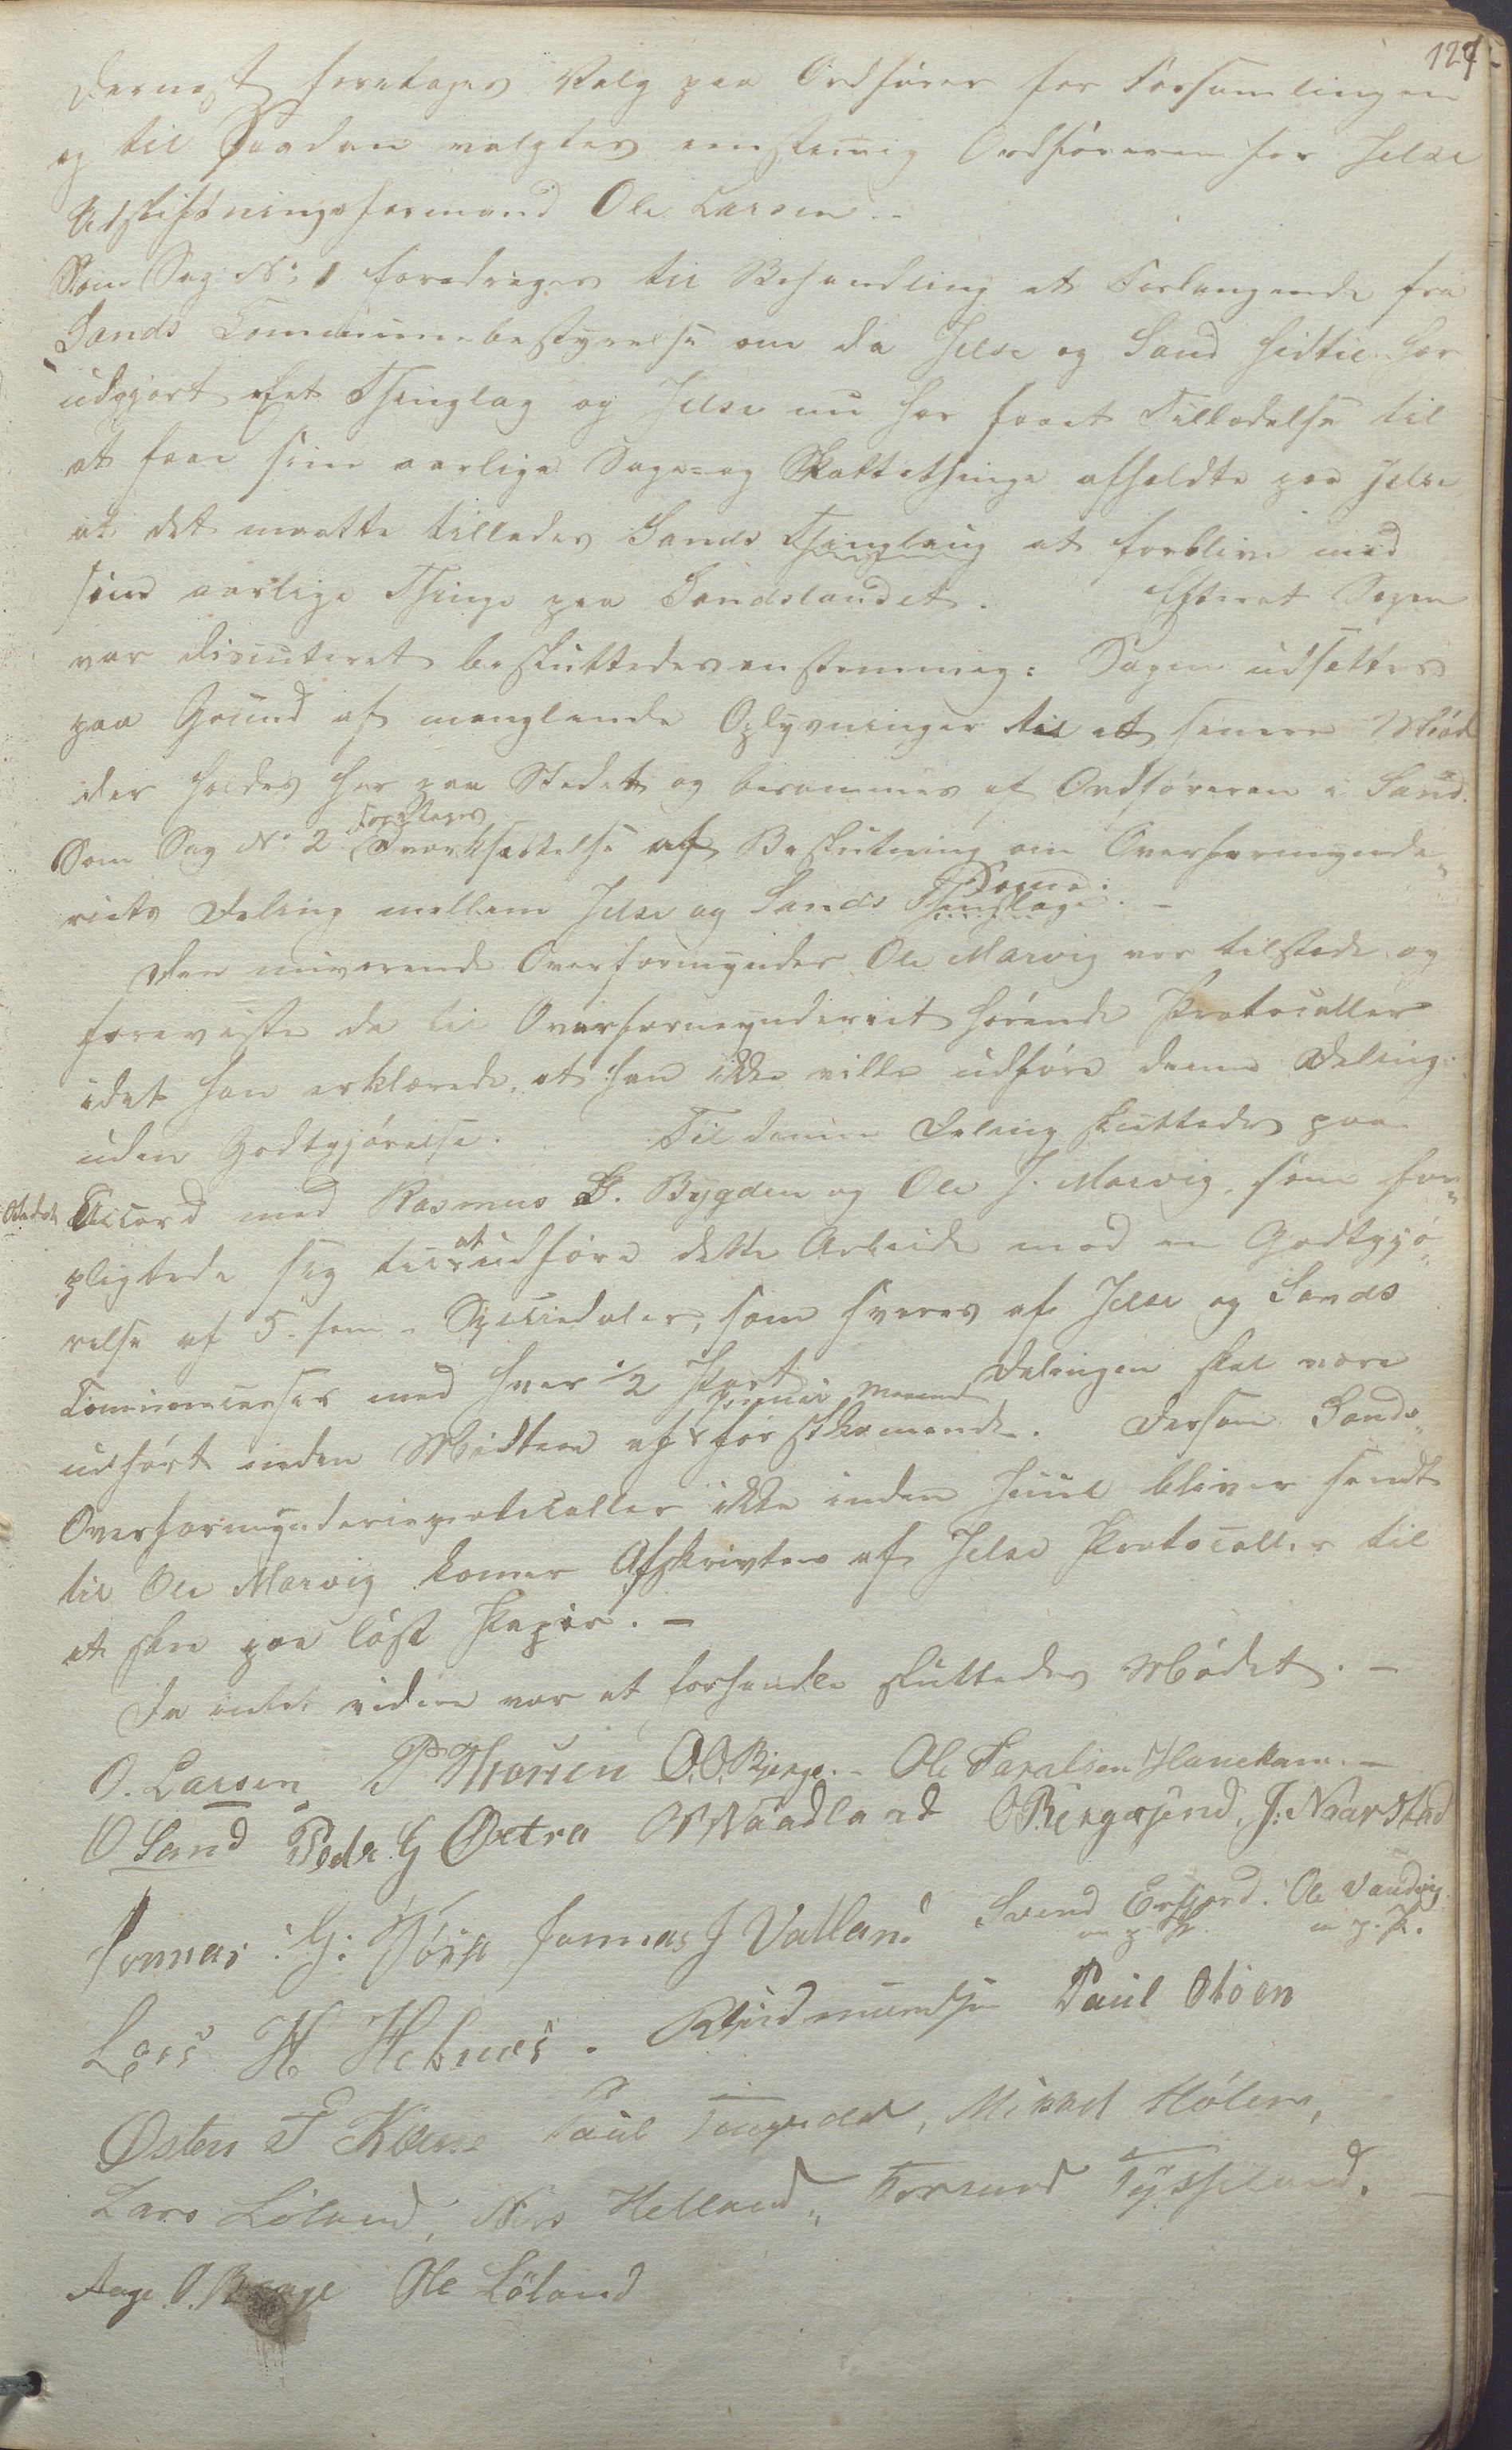 127
Dernæst foretages Valg paa Ordfører for Forsamlingen
og til Saadan valgtes eenstemig Ordføreren for Jelse
Udskiftningsformand Ole Larsen. -
Som Sag N: 1 foredrages til Behandling et Forlangende fra
Sands Communebestyrelse om da Jelse og Sand hidtil har
udgjort eet Thinglag og Jelse nu har faaet Tilladelse til
at faae sine aarlige Sage- og Skattethinge afholdte paa Jelse
at det maatte tillades Sands Thinglaug at forblive med
sine aarlige Thinge paa Sandslandet. Efterat Sagen
var discuteret besluttedes enstemmig: Sagen udsættes
paa Grund af manglende Oplysninger til et senere Møde
der holdes her paa Stedet og berammes af Ordføreren i Sand.
Som Sag N: 2 foretages Iværksættelse af Beslutning om Overformynde-
riets Deling mellem Jelse og Sands Thinglage. Sogne. -
Den nuværende Overformynder Ole Marvig var tilstede og
foreviste de til Overformynderiet hørende Protocoller
idet han erklærede, at han ikke ville udføre denne Deling
uden Godtgjørelse. Til denne Deling sluttedes paa
Stedet Accord med Rasmus B. Bygden og Ole J. Marvig, som for-
pligtede sig til at udføre dette Arbeide mod en Godtgjø-
relse af 5 - fem - Speciedaler, som svares af Jelse og Sands
Communecasser med hver 1/2 Part. Delingen skal være
udført inden Midten af Januar Maaned førstkommende. Dersom Sands
Overformynderieprotocoller ikke inden Juul bliver sendt
til Ole Marvig komer Afskrivten af Jelse Protocoller til
at skee paa løst Papir. -
Da intet videre var at forhandle sluttedes Mødet. -
O. Larsen P Thorsen O.O. Bjerge. - Ole Taralsen Hauekam. -
O Sand Peder G Østraa Waadland O Bergesend, J: Naarstad
Jonnas : G: Jonnas J Vatland Svend Erfjord. Ole Vandvig
m. p. P. m. p. P.
Lars H Hebnes. Gudmundsen Paul Støen
Østen T Paul , Mikkel Hølen,
Lars Løland, Nils Helland, Tormod Tysseland. -
Aage O. Berge Ole Løland